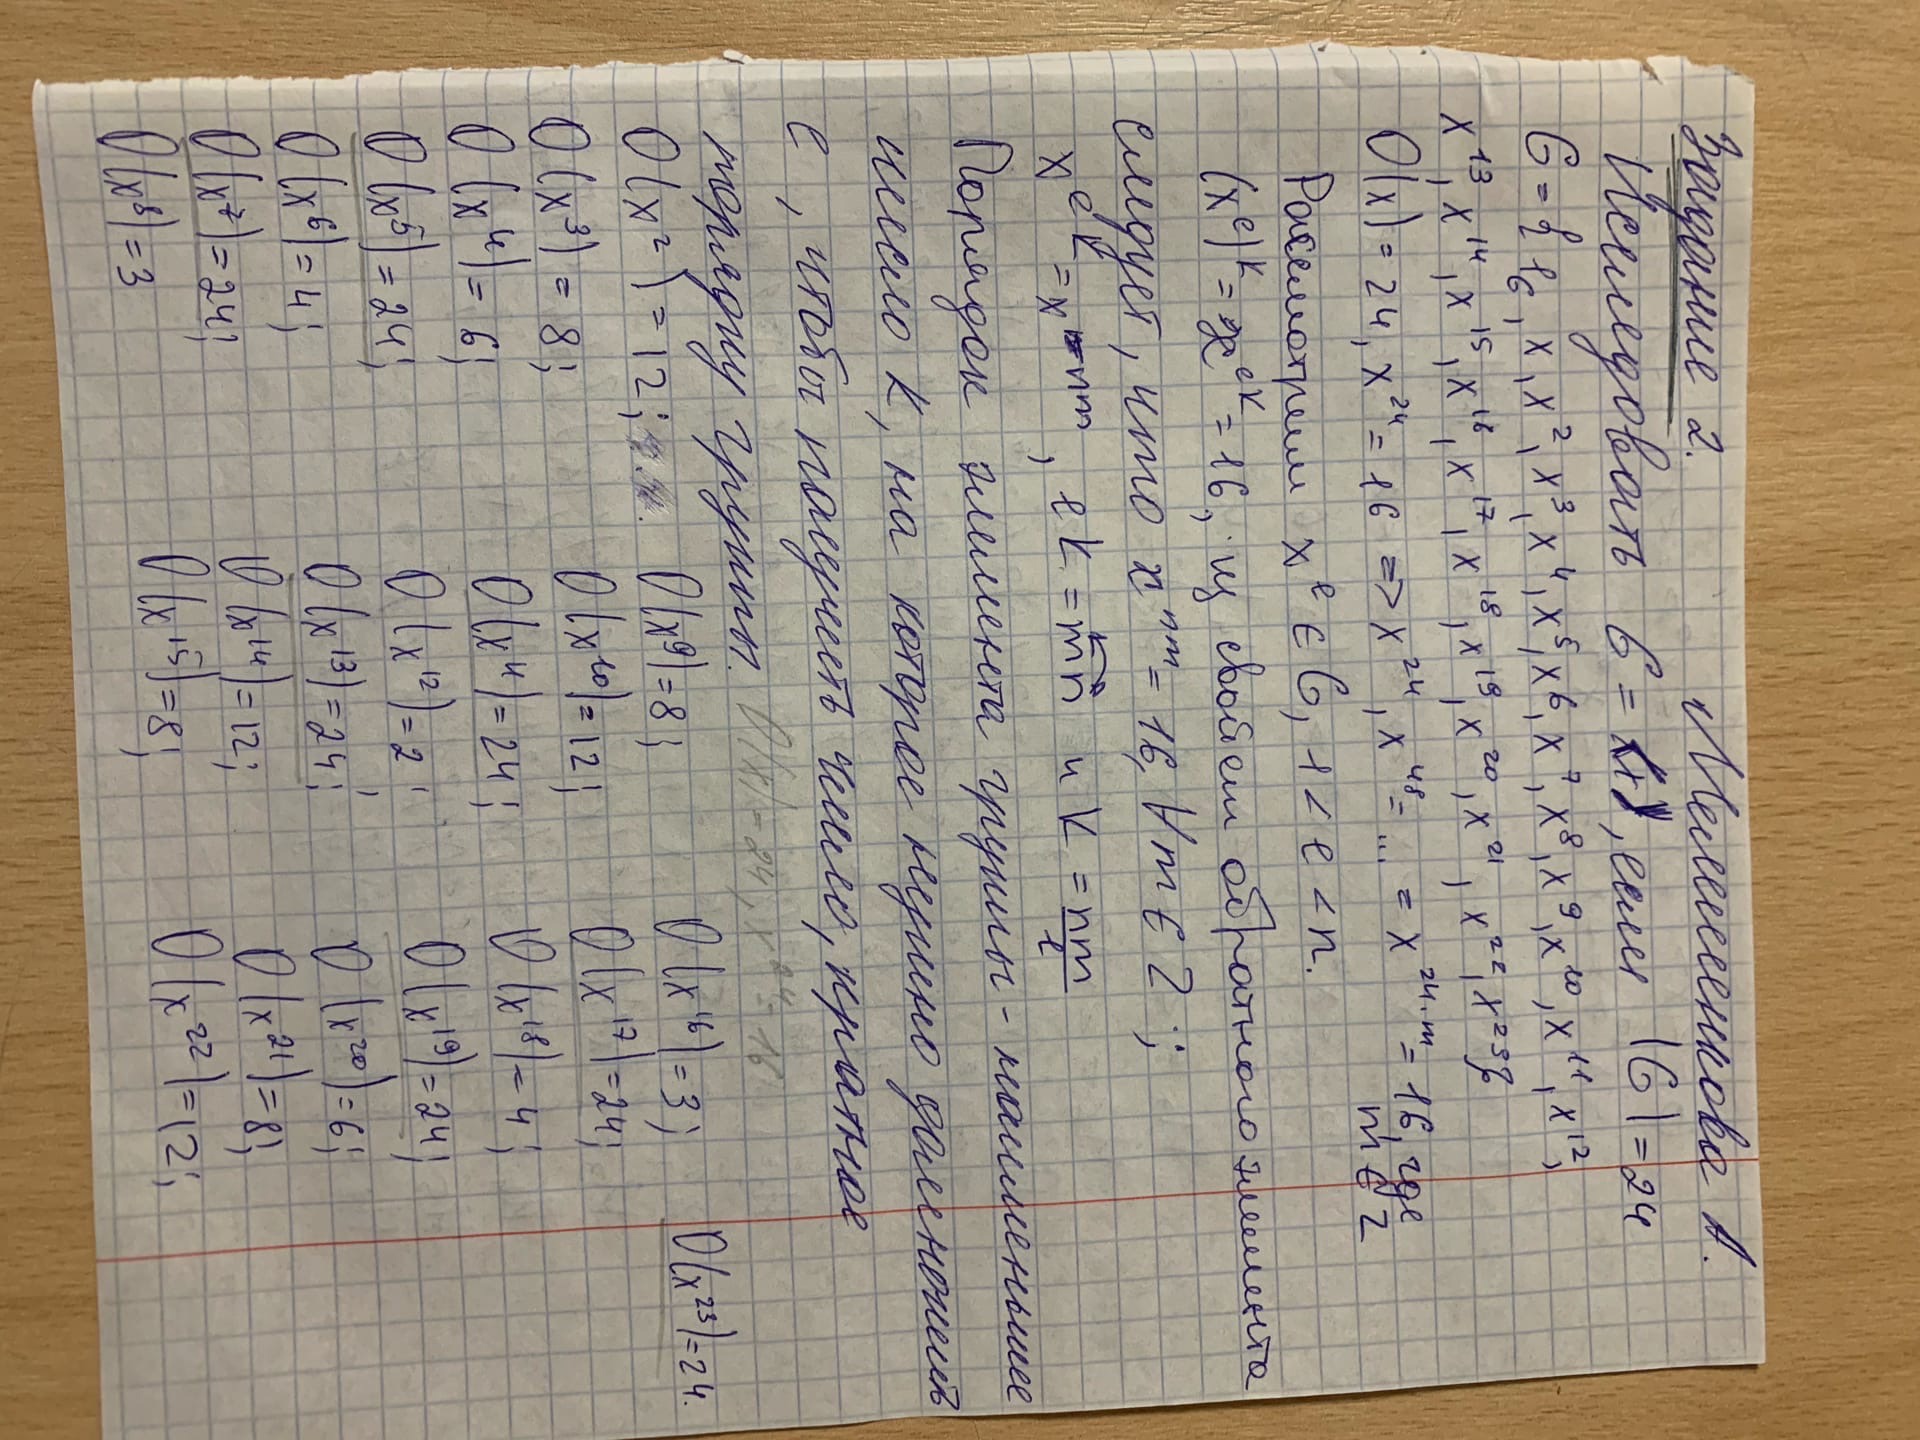 Задание 2. Мелессенкова А.
Исследовать G = <x>, если |G| = 24
G = {1G, x, x², x³, x⁴, x⁵, x⁶, x⁷, x⁸, x⁹, x¹⁰, x¹¹, x¹²,
x¹³, x¹⁴, x¹⁵, x¹⁶, x¹⁷, x¹⁸, x¹⁹, x²⁰, x²¹, x²², x²³}
O(x) = 24, x²⁴ = 1G => x²⁴, x⁴⁸ = ... = x²⁴·ᵐ = 1G, где
m ∈ Z
Рассмотрим xᵉ ∈ G, 1 < e < n.
(xᵉ)ᵏ = xᵉᵏ = 1G, из свойств обратного элемента
следует, что xⁿᵐ = 1G, ∀m ∈ Z;
xᵉᵏ = xⁿᵐ, ek = mn и k = nm/e
Порядок элемента группы - наименьшее
число k, на которое нужно домножить
e, чтобы получить число, кратное
порядку группы. O(x) = 24, x²⁴ = 1G
O(x²) = 12; O(x⁹) = 8; O(x¹⁶) = 3; O(x²³) = 24.
O(x³) = 8; O(x¹⁰) = 12; O(x¹⁷) = 24;
O(x⁴) = 6; O(x⁴) = 24; O(x¹⁸) = 4;
O(x⁵) = 24; O(x¹²) = 2; O(x¹⁹) = 24;
O(x⁶) = 4; O(x¹³) = 24; O(x²⁰) = 6;
O(x⁷) = 24; O(x¹⁴) = 12; O(x²¹) = 8;
O(x⁸) = 3 O(x¹⁵) = 8; O(x²²) = 12;